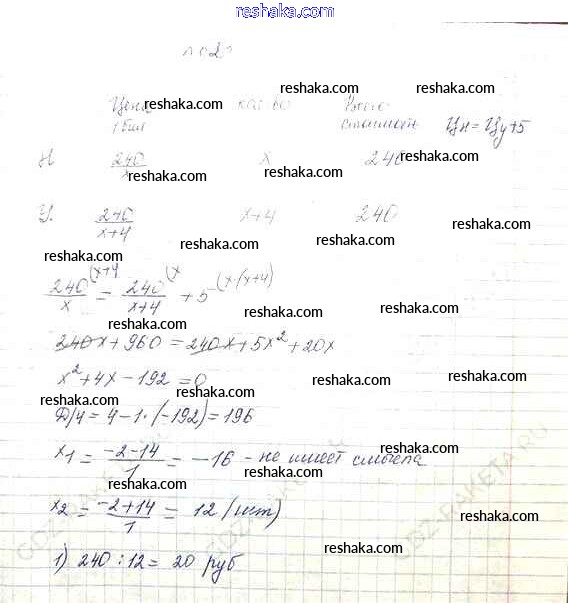 reshaka.com
№ 02
Цена reshaka.com кол-во reshaka.com Всего reshaka.com
1 бил reshaka.com стоимость Цн = Цу+5
Н 240/x reshaka.com x 240 reshaka.com
У. 240/(x+4) reshaka.com x+4 240 reshaka.com
reshaka.com reshaka.com
240/x (x+4 = 240/(x+4) (x + 5 (x·(x+4)
reshaka.com reshaka.com
240x + 960 = 240x + 5x² + 20x reshaka.com
x² + 4x - 192 = 0 reshaka.com
reshaka.com reshaka.com
Д/4 = 4 - 1 · (-192) = 196
reshaka.com reshaka.com
x1 = (-2-14)/1 = -16 - не имеет смысла
reshaka.com reshaka.com
x2 = (-2+14)/1 = 12 (шт)
reshaka.com reshaka.com
1) 240 : 12 = 20 руб reshaka.com
reshaka.com
GDZ-RAKETA.RU